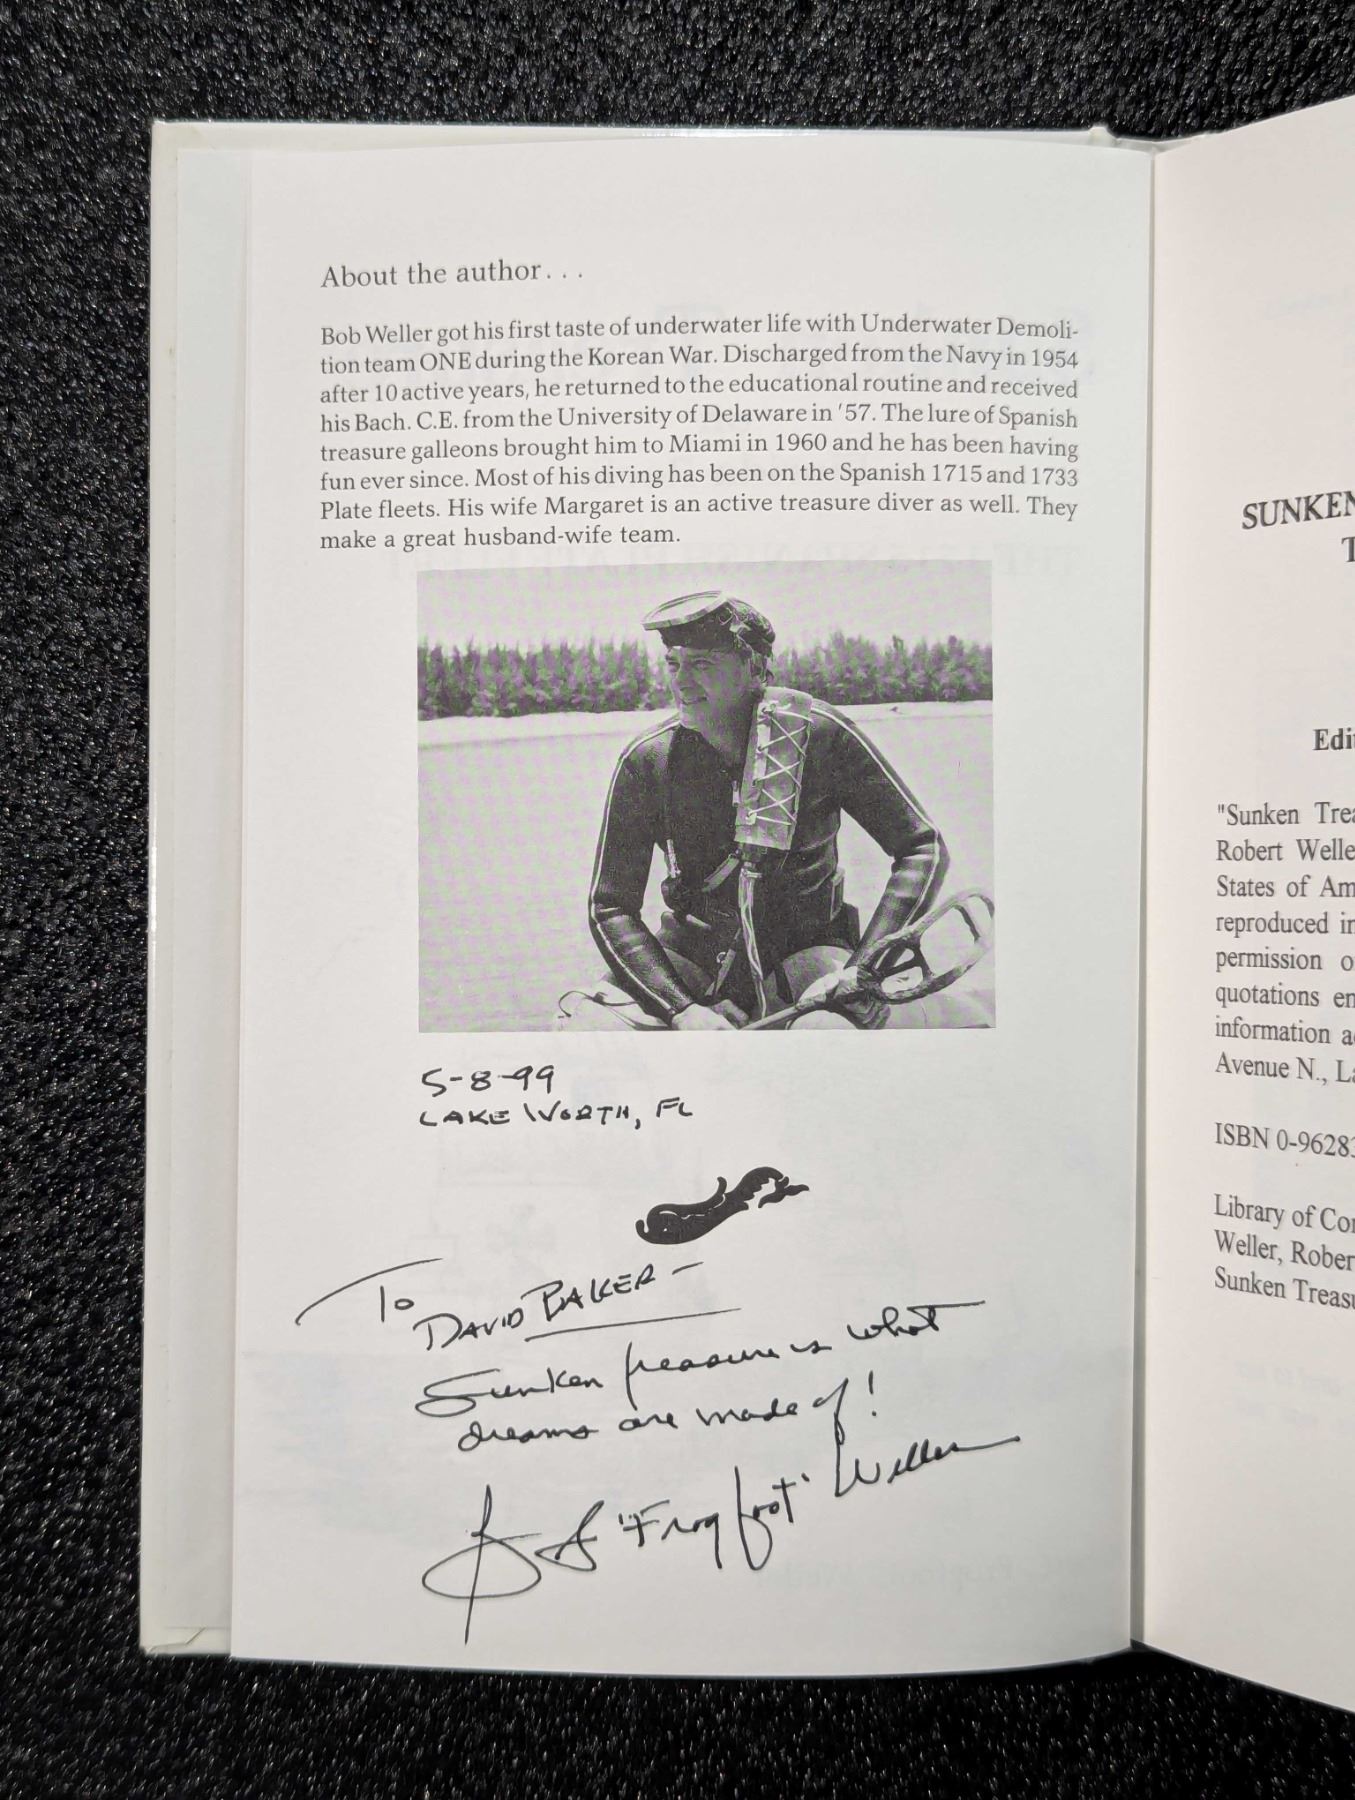 About the author . . .
Bob Weller got his first taste of underwater life with Underwater Demoli-
tion team ONE during the Korean War. Discharged from the Navy in 1954
after 10 active years, he returned to the educational routine and received
his Bach. C.E. from the University of Delaware in '57. The lure of Spanish
treasure galleons brought him to Miami in 1960 and he has been having
fun ever since. Most of his diving has been on the Spanish 1715 and 1733
Plate fleets. His wife Margaret is an active treasure diver as well. They
make a great husband-wife team.
5-8-99
LAKE WORTH, FL
To
DAVID BAKER -
Sunken treasure is what
dreams are made of!
Bob "Frogfoot" Weller
SUNKEN
T
Edi
"Sunken Trea
Robert Welle
States of Am
reproduced in
permission o
quotations en
information a
Avenue N., La
ISBN 0-96283
Library of Con
Weller, Rober
Sunken Treasu